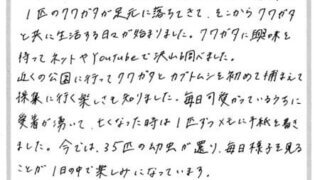 1匹のクワガタが足元に落ちてきて、そこからクワガタ
と共に生活する日々が始まりました。クワガタに興味を
持ってネットやYoutubeで沢山調べました。
近くの公園に行ってクワガタとカブトムシを初めて捕まえて
採集に行く楽しさも知りました。毎日可愛がっているうちに
愛着が湧いて、亡くなった時は1匹ずつメモに手紙を書き
ました。今では、35匹の幼虫が還り、毎日様子を見る
ことが1日の中で楽しみになっています。